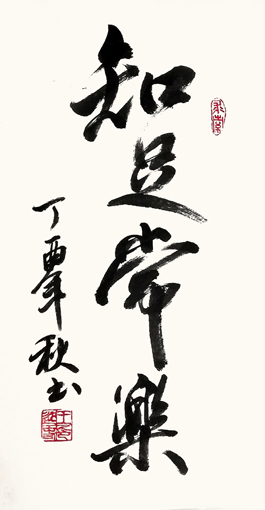 知足常樂
丁酉年秋書